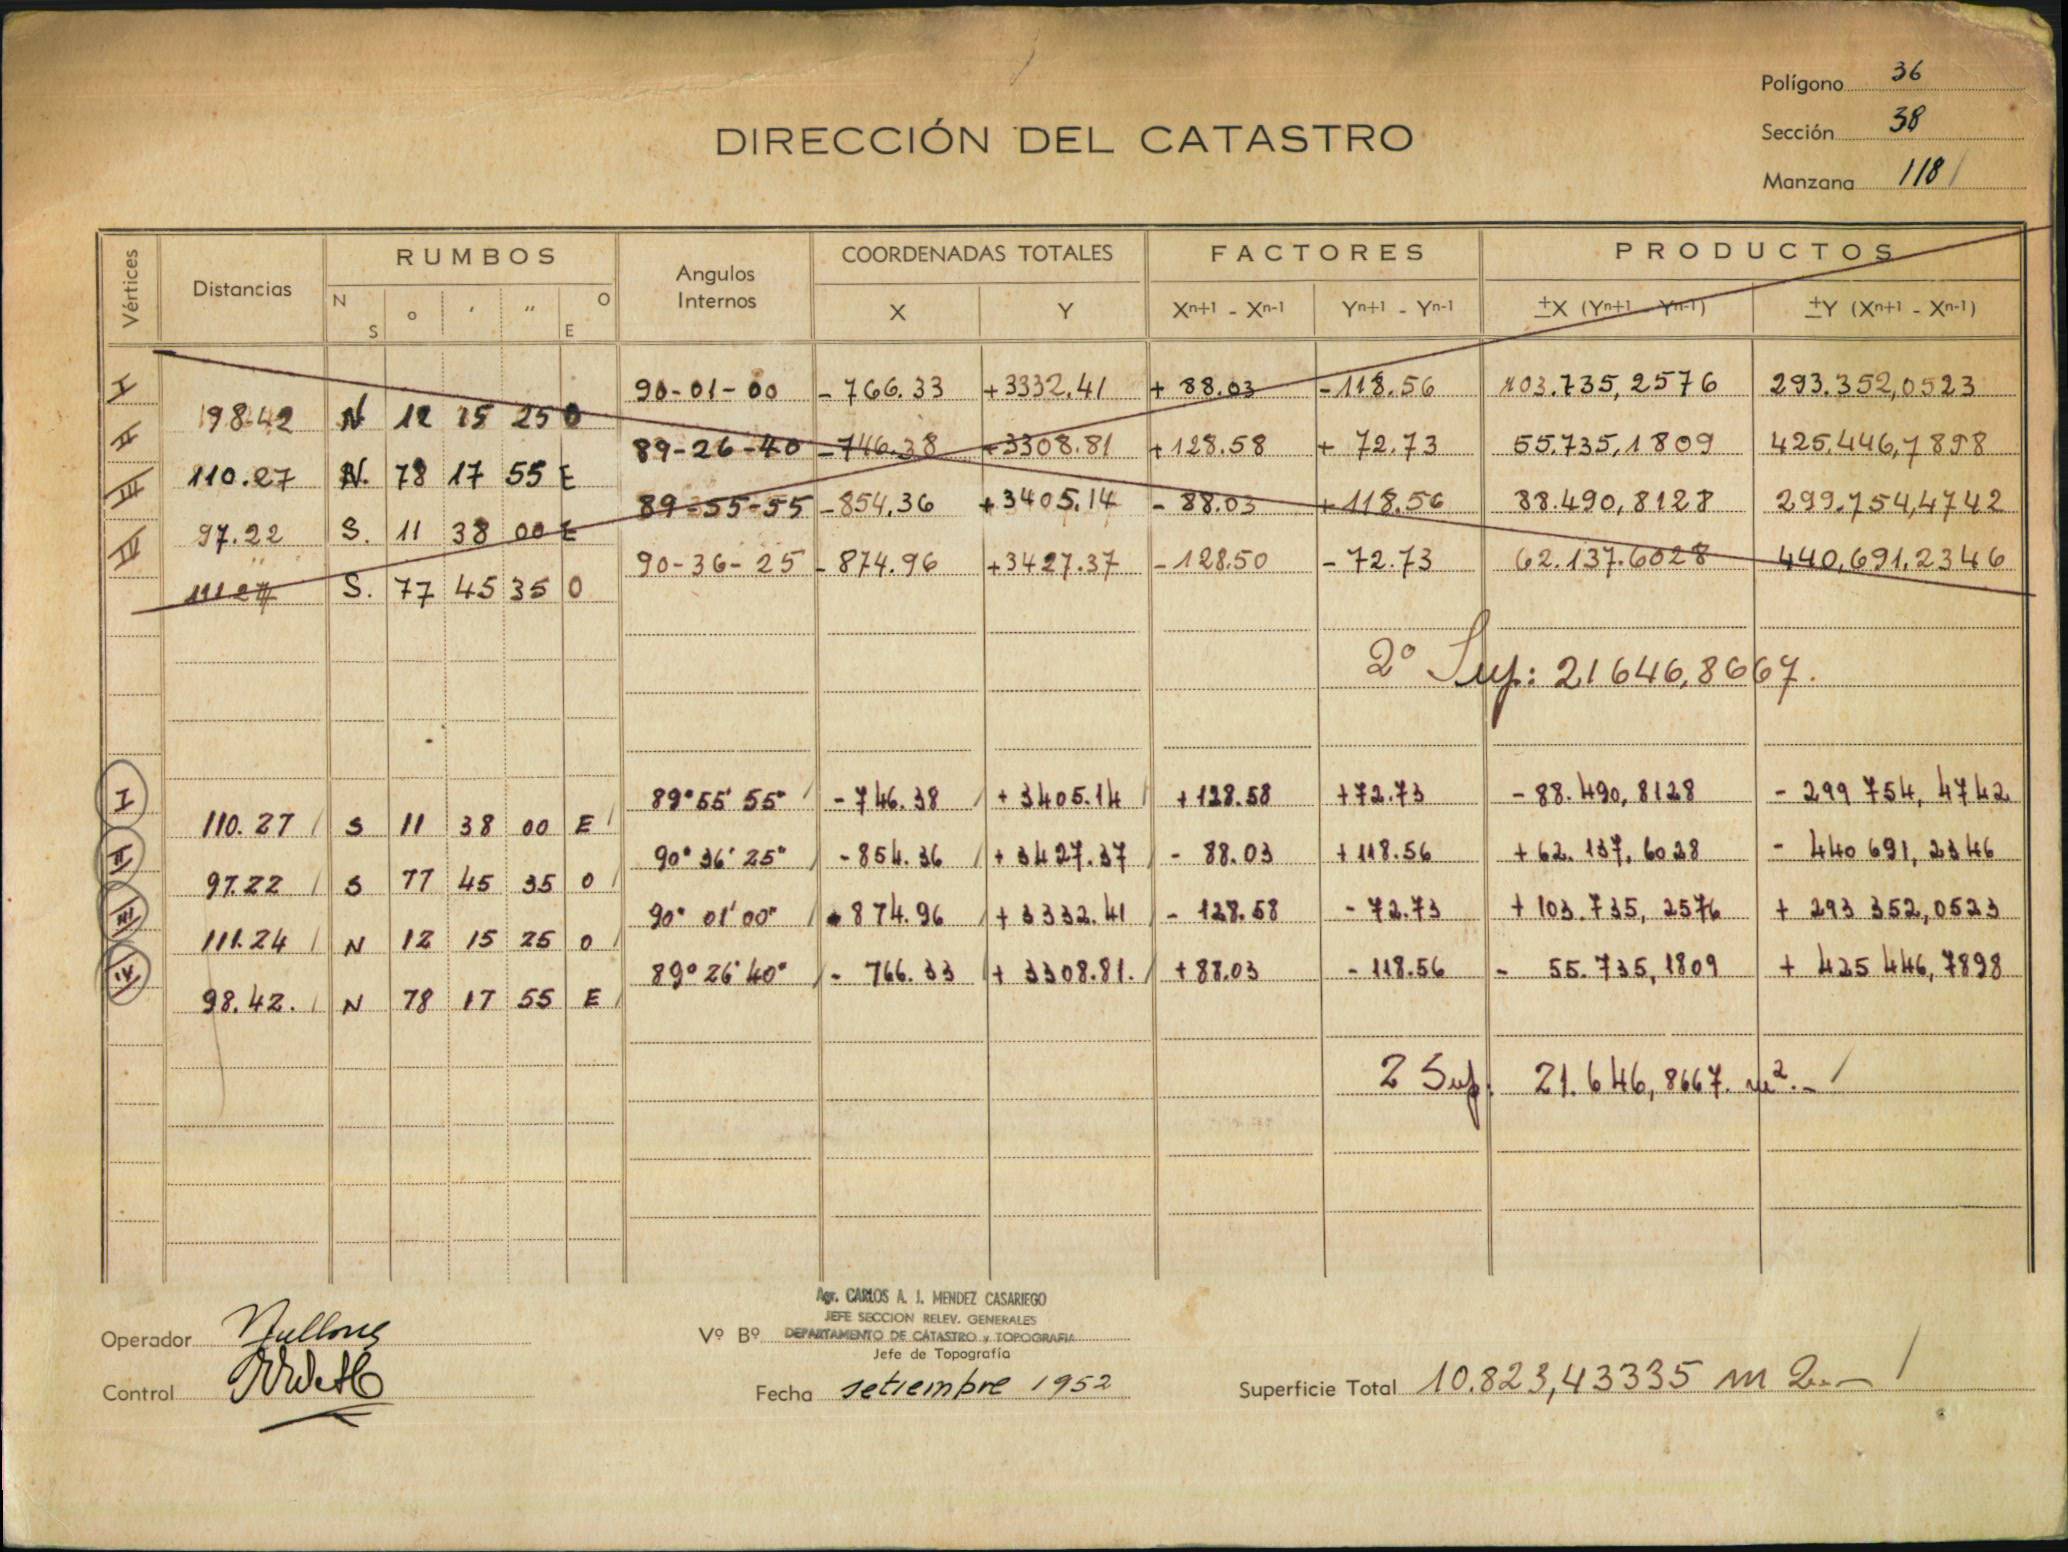 Polígono 36
Sección 38
Manzana 118
DIRECCIÓN DEL CATASTRO
Vértices Distancias RUMBOS Angulos Internos COORDENADAS TOTALES FACTORES PRODUCTOS
N S ° ' " O E X Y Xn+1 - Xn-1 Yn+1 - Yn-1 ±X (Yn+1 - Yn-1) ±Y (Xn+1 - Xn-1)
I 90-01-00 - 766.33 +3332.41 + 88.03 -118.56 103.735,2576 293.352,0523
98.42 N 12 15 25 O
II 89-26-40 -746.38 +3308.81 +128.58 + 72.73 55.735,1809 425.446,7898
110.27 N. 78 17 55 E
III 89-55-55 -854.36 +3405.14 - 88.03 +118.56 88.490,8128 299.754,4742
97.22 S. 11 38 00 E
IV 90-36-25 -874.96 +3427.37 -128.50 -72.73 62.137.6028 440,691,2346
S. 77 45 35 O
2° Sup: 21646,8667.
I 89°55'55" -746.38 + 3405.14 +128.58 +72.73 -88.490,8128 - 299 754, 4742
110.27 S 11 38 00 E
II 90°36'25" -854.36 + 3427.37 - 88.03 +118.56 +62.137,6028 - 440 691, 2346
97.22 S 77 45 35 O
III 90°01'00" -874.96 + 3332.41 - 128.58 -72.73 + 103.735, 2576 + 293 352,0523
111.24 N 12 15 25 O
IV 89°26'40" - 766.33 + 3308.81. +88.03 - 118.56 - 55.735,1809 + 425 446,7898
98.42. N 78 17 55 E
2 Sup. 21.646,8667. m².-
Agr. CARLOS A. J. MENDEZ CASARIEGO
JEFE SECCION RELEV. GENERALES
Operador Vº Bº DEPARTAMENTO DE CATASTRO y TOPOGRAFIA
Jefe de Topografía
Control Fecha setiembre 1952 Superficie Total 10.823,43335 m 2.-